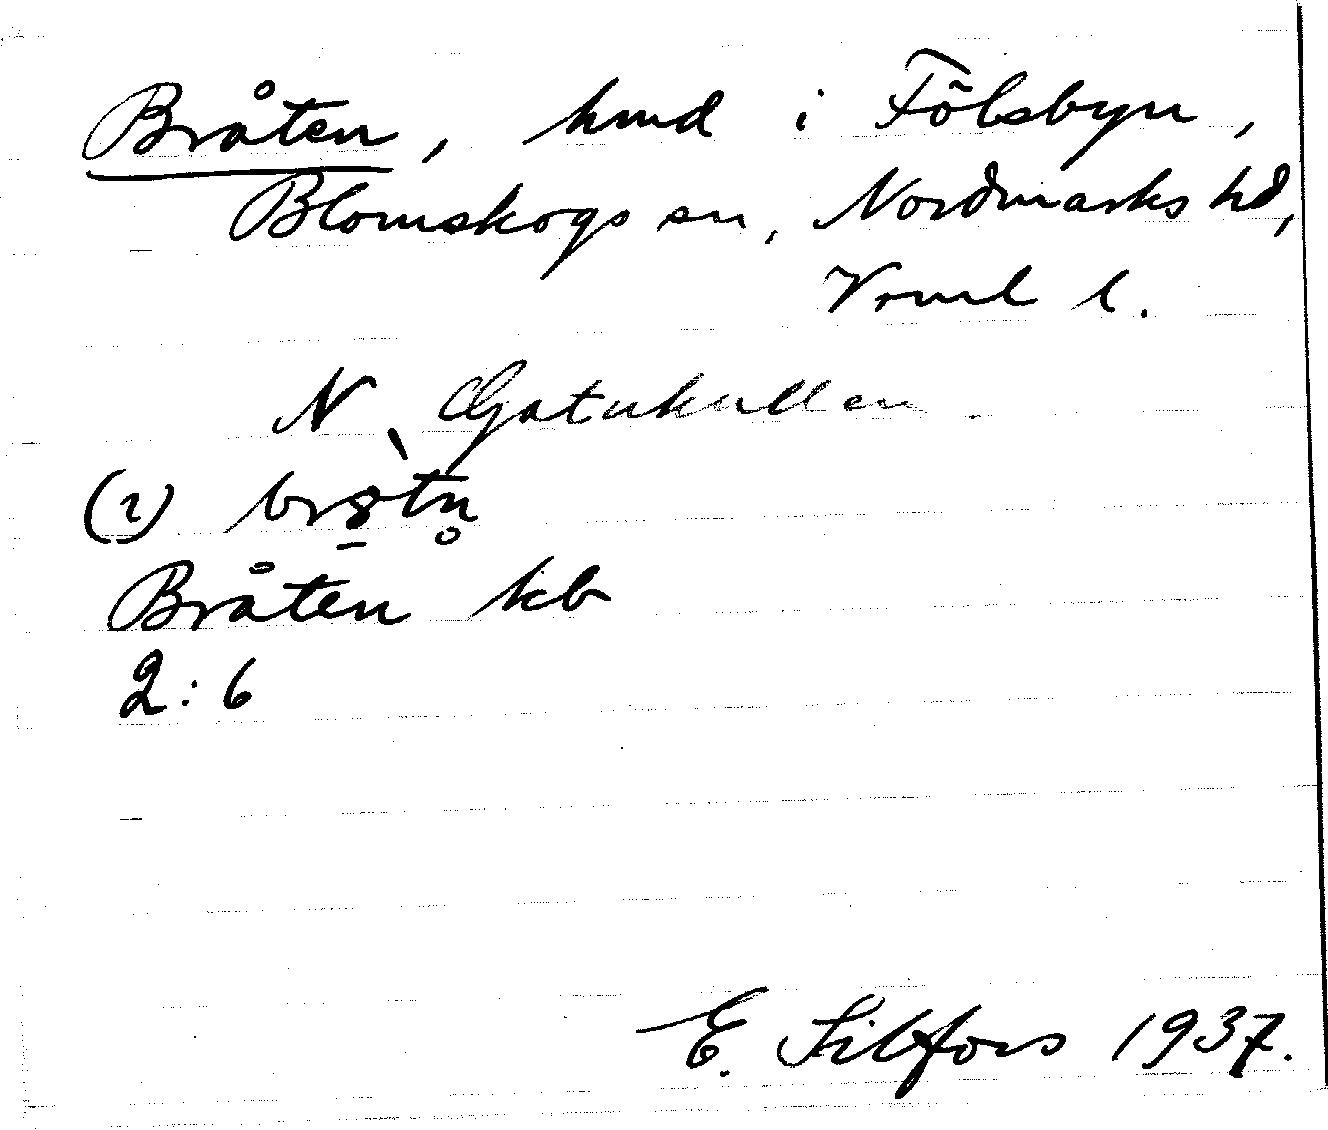 Bråten, hmd i Fölsbyn,
Blomskogs sn, Nordmarks hd,
Vrml l.
N Gatukullen
(2) br8̱̀tn̥
Bråten kb
2:6
E. Silfors 1937.